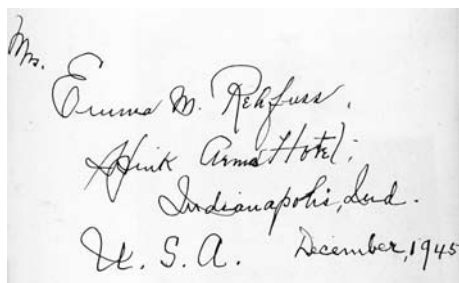 Mrs.
Emma M. Rehfuss,
Spink Arms Hotel;
Indianapolis, Ind.
U. S. A. December, 1945